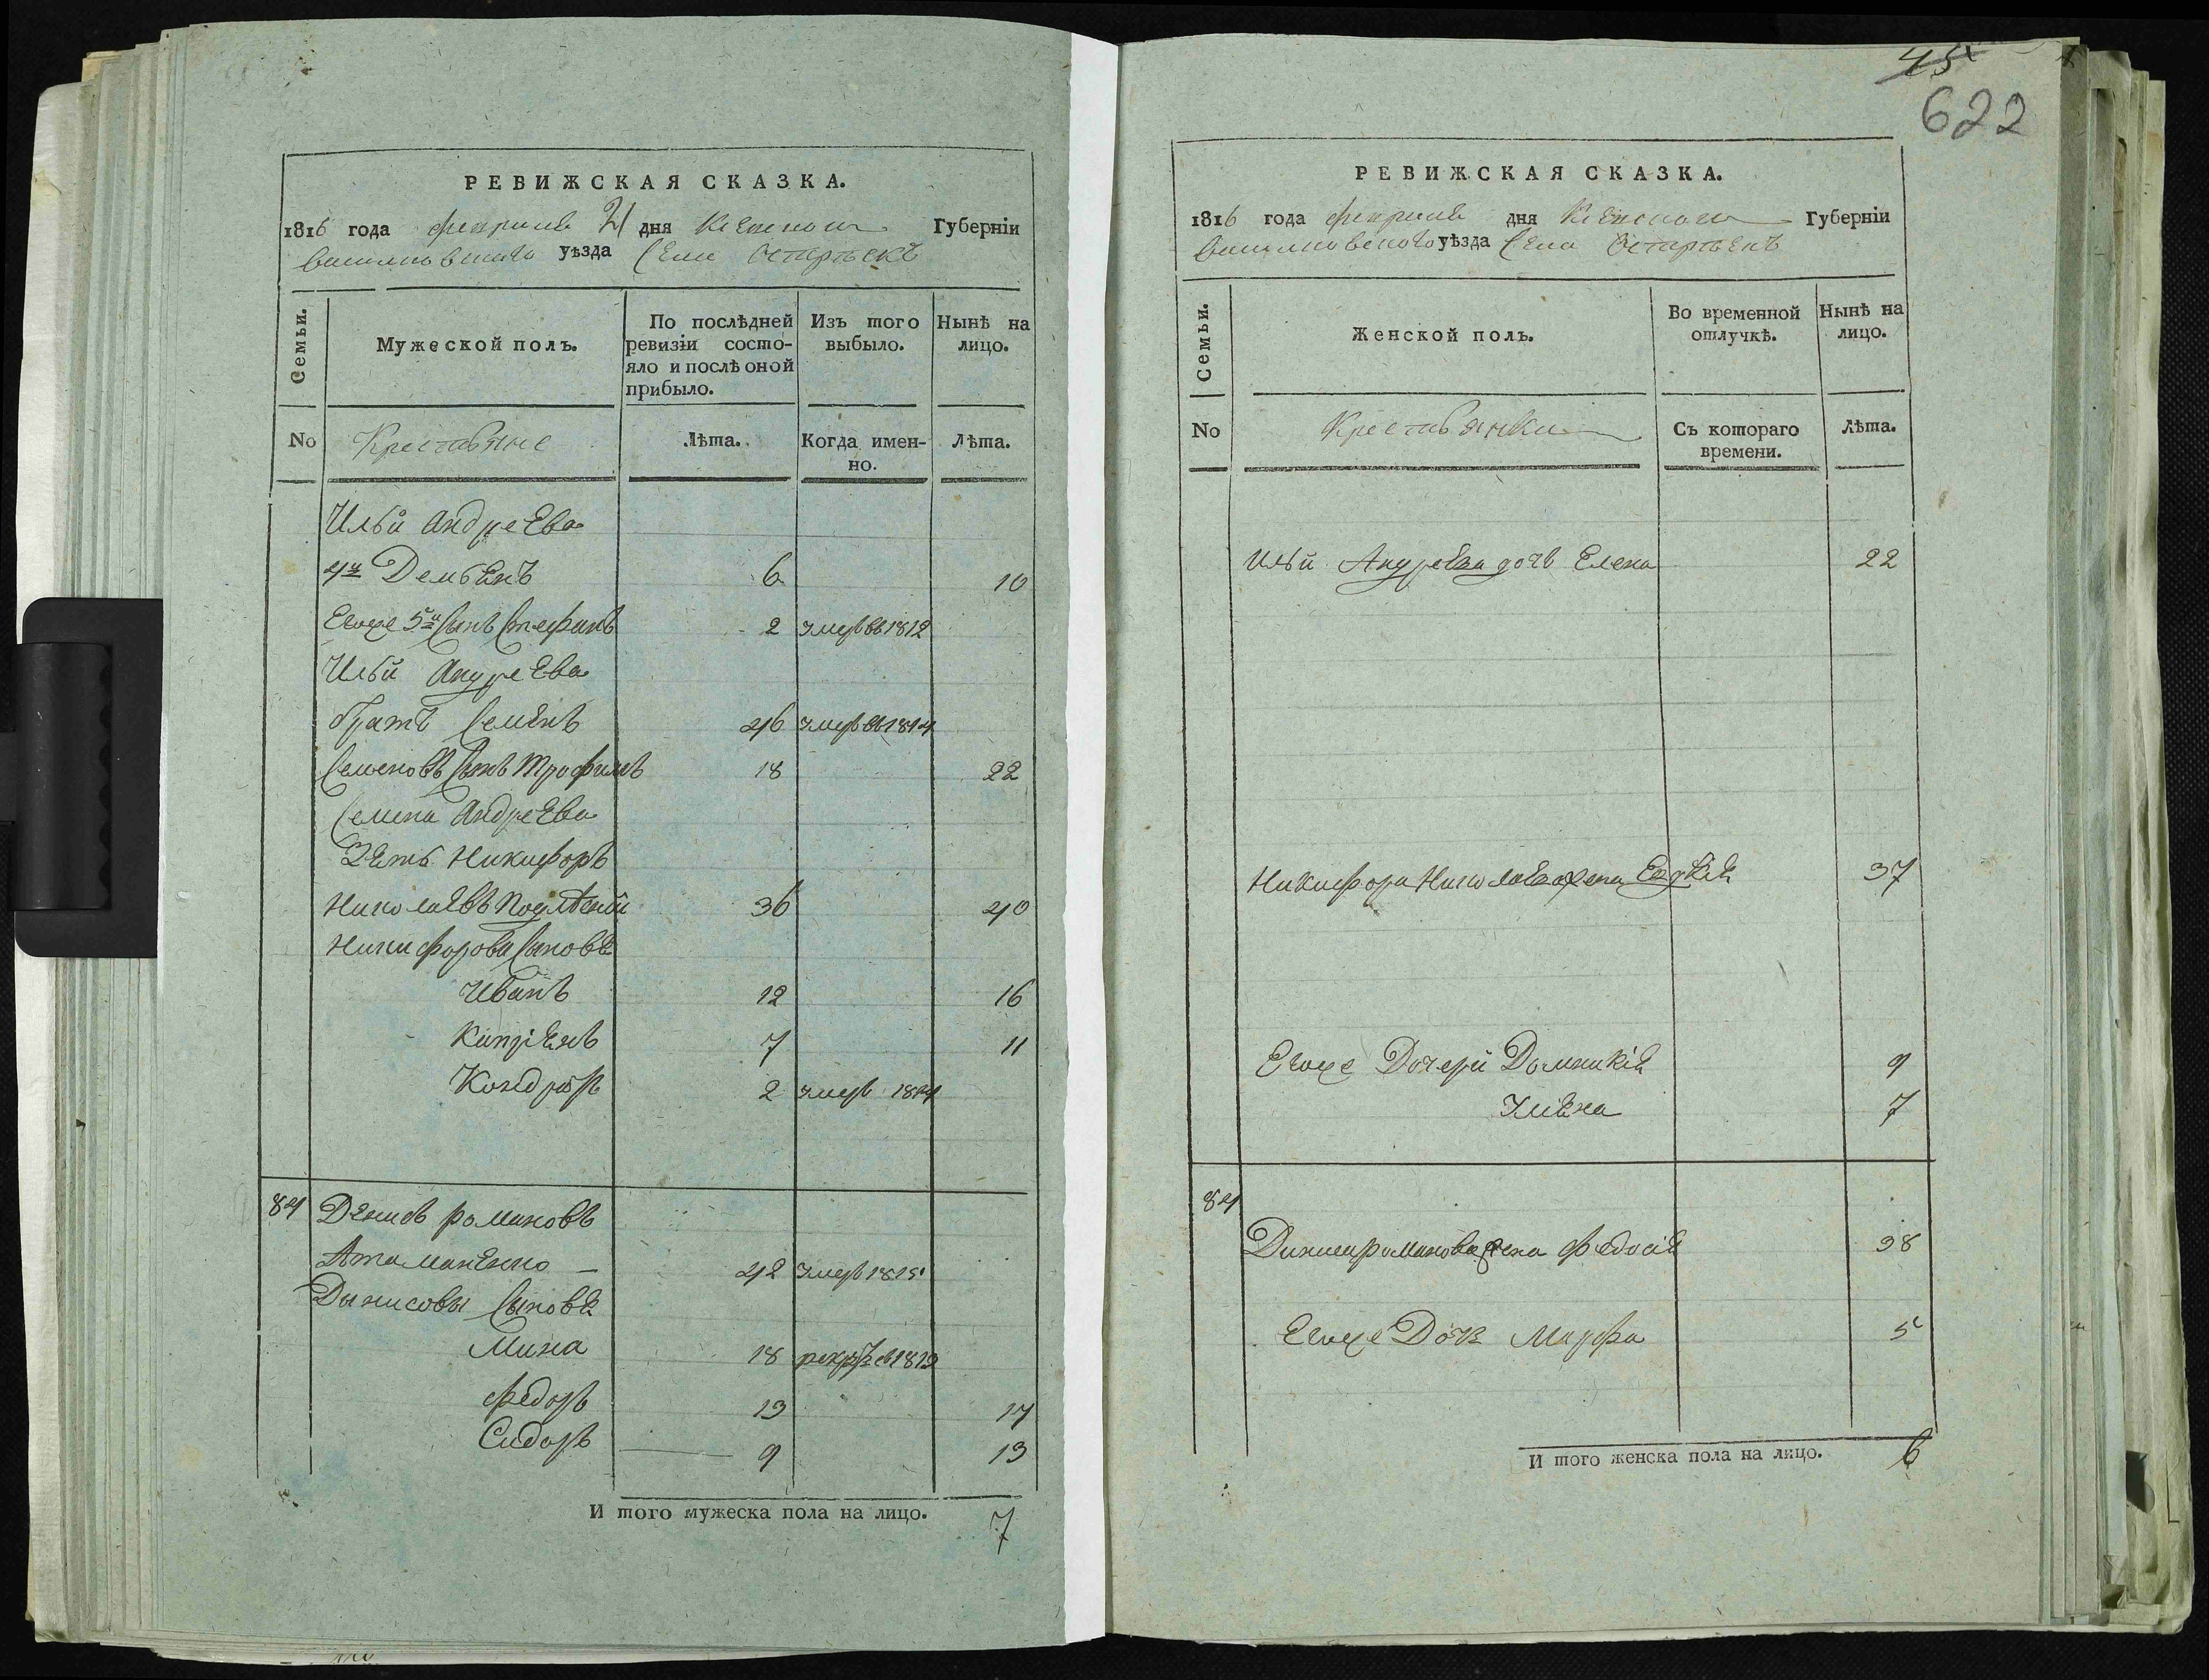 РЕВИЖСКАЯ СКАЗКА.
1816 года февраля 21 дня Киевской Губерніи
Васильковского уѣзда Села
Семьи.
Мужеской полъ.
По послѣдней ревизіи состояло и послѣ оной прибыло.
Изъ того выбыло.
Нынѣ на лицо.
No
Крестьяне
Лѣта.
Когда именно.
Лѣта.
Ильи Андреева
4й Демьенъ 6 10
Егоже 5й Сынъ Стефанъ 2 умеръ въ 1812
Ильи Андреева
братъ Семенъ 46 умеръ въ 1814
Семеновъ Сынъ Трофимъ 18 22
Семена Андреева
Зеть Никифоръ
Николаевъ Подлѣсный 36 40
Никифоровы Сыновя
Иванъ 12 16
Кипріянъ 7 11
Кондратъ 2 умеръ 1814
84 Денисъ романовъ
Атаманенко 42 умеръ 1815
Данисовы Сыновя
Мина 18 1813
Федоръ 13 17
Сидоръ 9 13
И того мужеска пола на лицо. 7
45
622
РЕВИЖСКАЯ СКАЗКА.
1816 года февраля дня Киевской Губерніи
Васильковского уѣзда Села
Семьи.
Женской полъ.
Во временной отлучкѣ.
Нынѣ на лицо.
No
Крестьянки
Съ котораго времени.
Лѣта.
Ильи Андреева дочь Елена 22
Никифора Николаева жена Евдокія 37
Егоже Дочери Домникія 9
Улияна 7
84
Дениса романова жена Федосія 38
Егоже Дочь Марфа 5
И того женска пола на лицо. 6